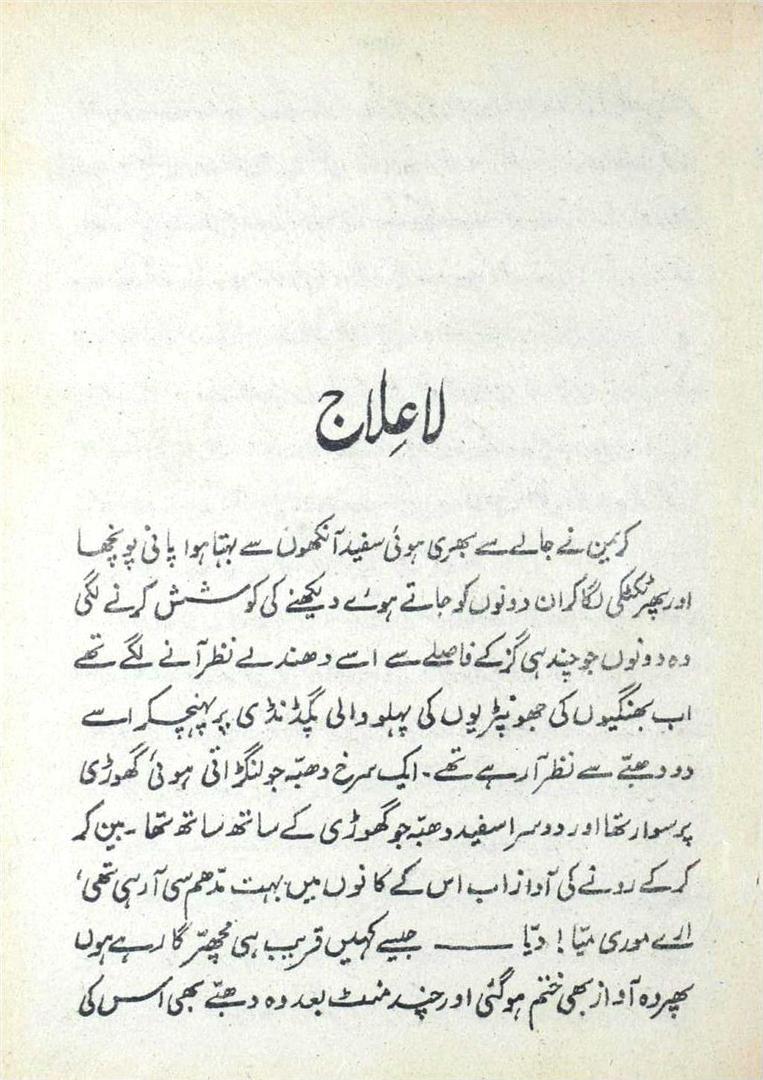 لاعلاج
کریمن نے جالے سے بھری ہوئی سفید آنکھوں سے بہتا ہوا پانی پونچھا
اور پھر ٹکٹکی لگا کر ان دونوں کو جاتے ہوئے دیکھنے کی کوشش کرنے لگی
وہ دونوں جو چند ہی گز کے فاصلے سے اسے دھندلے نظر آنے لگے تھے
اب بھنگیوں کی جھونپڑیوں کی پہلو والی پگڈنڈی پر پہنچکر اسے
دو دھبّے سے نظر آ رہے تھے۔ ایک سرخ دھبّہ جو لنگڑاتی ہوئی گھوڑی
پر سوار تھا اور دوسرا سفید دھبّہ جو گھوڑی کے ساتھ ساتھ تھا۔ بین کر
کر کے رونے کی آواز اب اس کے کانوں میں بہت مدّھم سی آ رہی تھی،
ارے موری میّا! دیّا ——— جیسے کہیں قریب ہی مچھّر گا رہے ہوں
پھر وہ آواز بھی ختم ہو گئی اور چند منٹ بعد وہ دھبّے بھی اس کی